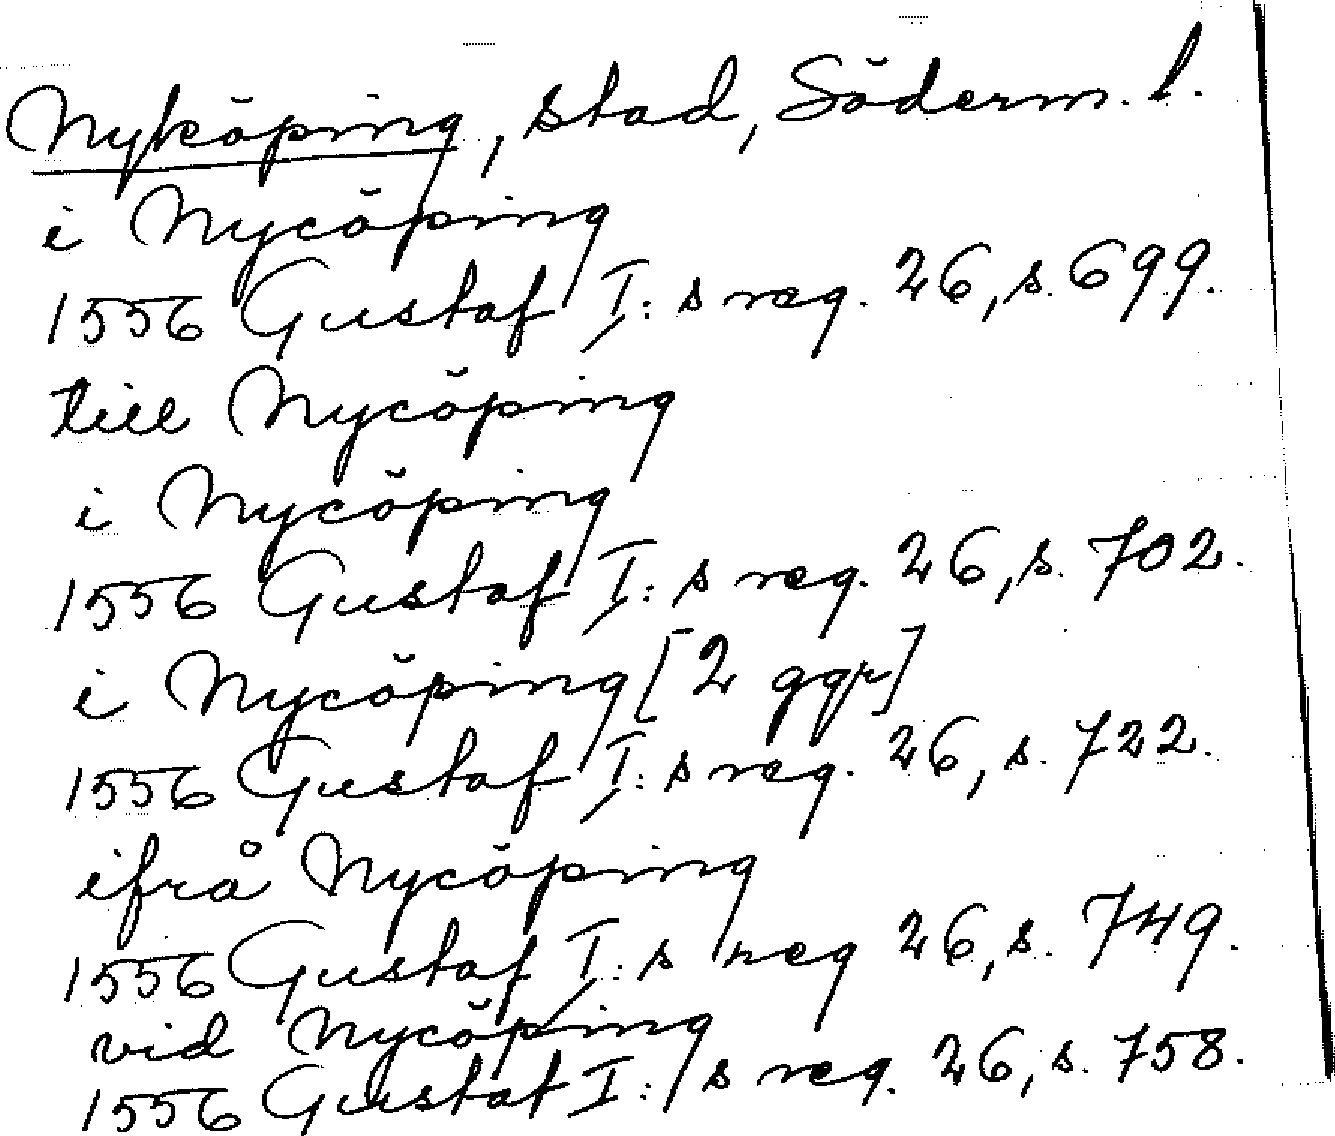 Nyköping, stad, Söderm. l.
i Nycöping
1556 Gustaf I:s reg. 26, s. 699.
till Nycöping
i Nycöping
1556 Gustaf I:s reg. 26, s. 702.
i Nycöping [2 ggr]
1556 Gustaf I:s reg. 26, s. 722.
ifrå Nycöping
1556 Gustaf I:s reg 26, s. 749.
vid Nycöping
1556 Gustaf I:s reg. 26, s. 758.